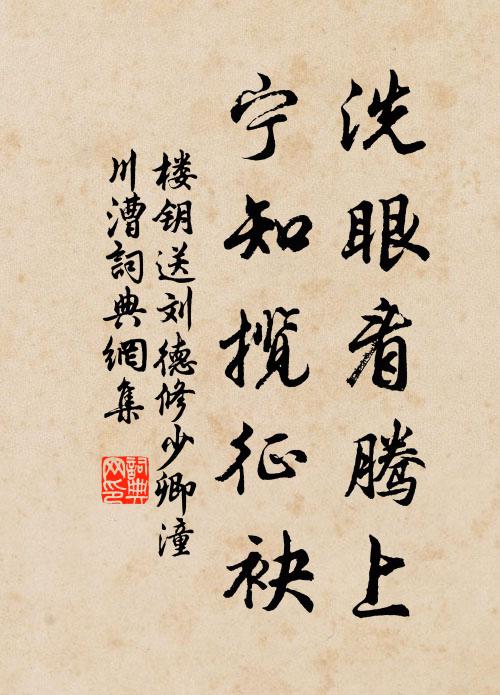 洗眼看腾上
宁知揽征袂
楼钥送刘德修少卿潼
川漕詞典網集
詞典
网印